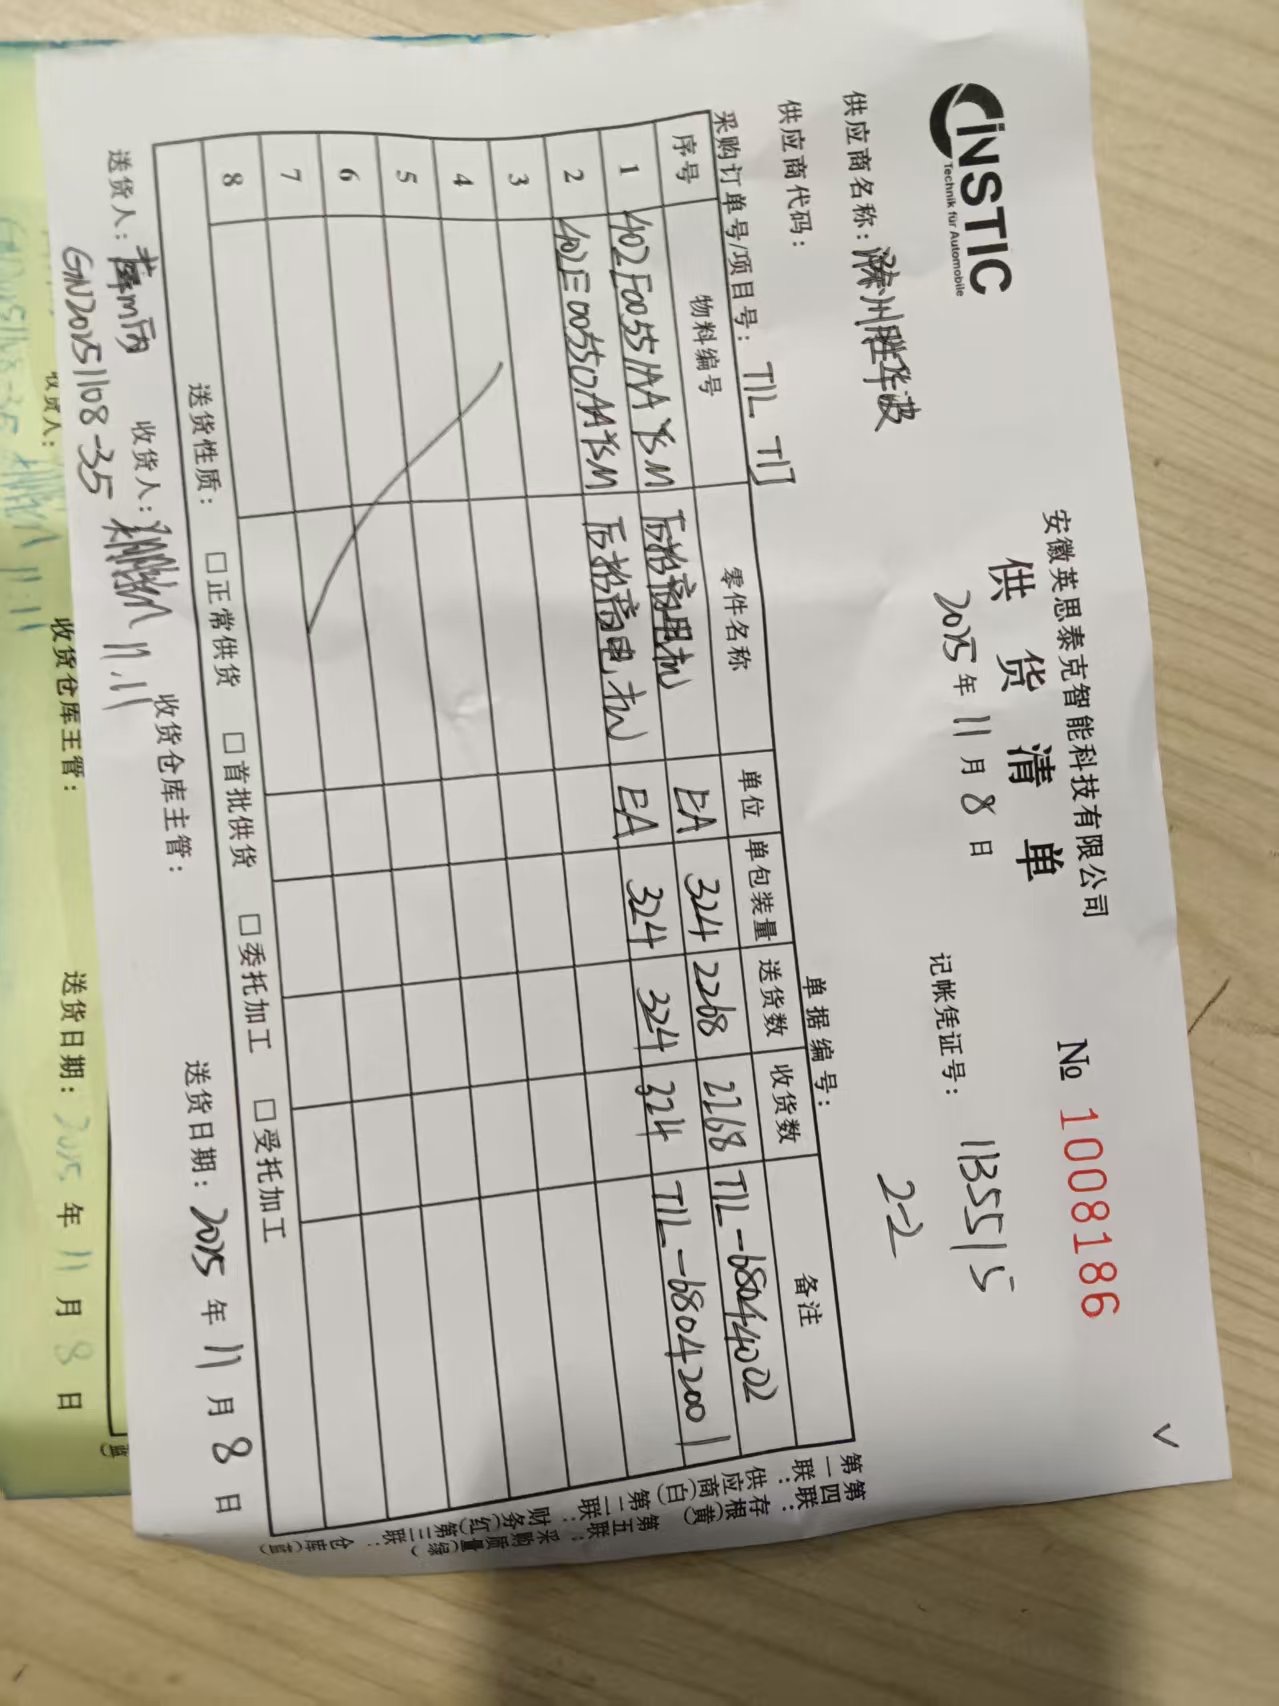 INSTIC
Technik für Automobile
安徽英思泰克智能科技有限公司
№ 1008186
供货清单
2025年11月8日
记帐凭证号: 1135515
2-2
供应商名称:滁州胜华波
供应商代码:
采购订单号/项目号: T1L T1J
单据编号:
序号 物料编号 零件名称 单位 单包装量 送货数 收货数 备注
1 402F00551AAYSM 后抬高电机 EA 324 2268 2268 T1L-68044002
2 402E00550AAYSM 后抬高电机 EA 324 324 324 T1L-68042001
3
4
5
6
7
8
送货性质: □正常供货 □首批供货 □委托加工 □受托加工
送货人: 收货人: 11.11 收货仓库主管: 送货日期: 2025年11月8日
GN20251108-35
第一联:存根(黄) 第二联:财务(红) 第三联:仓库(蓝)
第四联:供应商(白) 第五联:采购质量(绿)
收货人: 收货仓库主管: 送货日期: 2025年11月8日
11.11